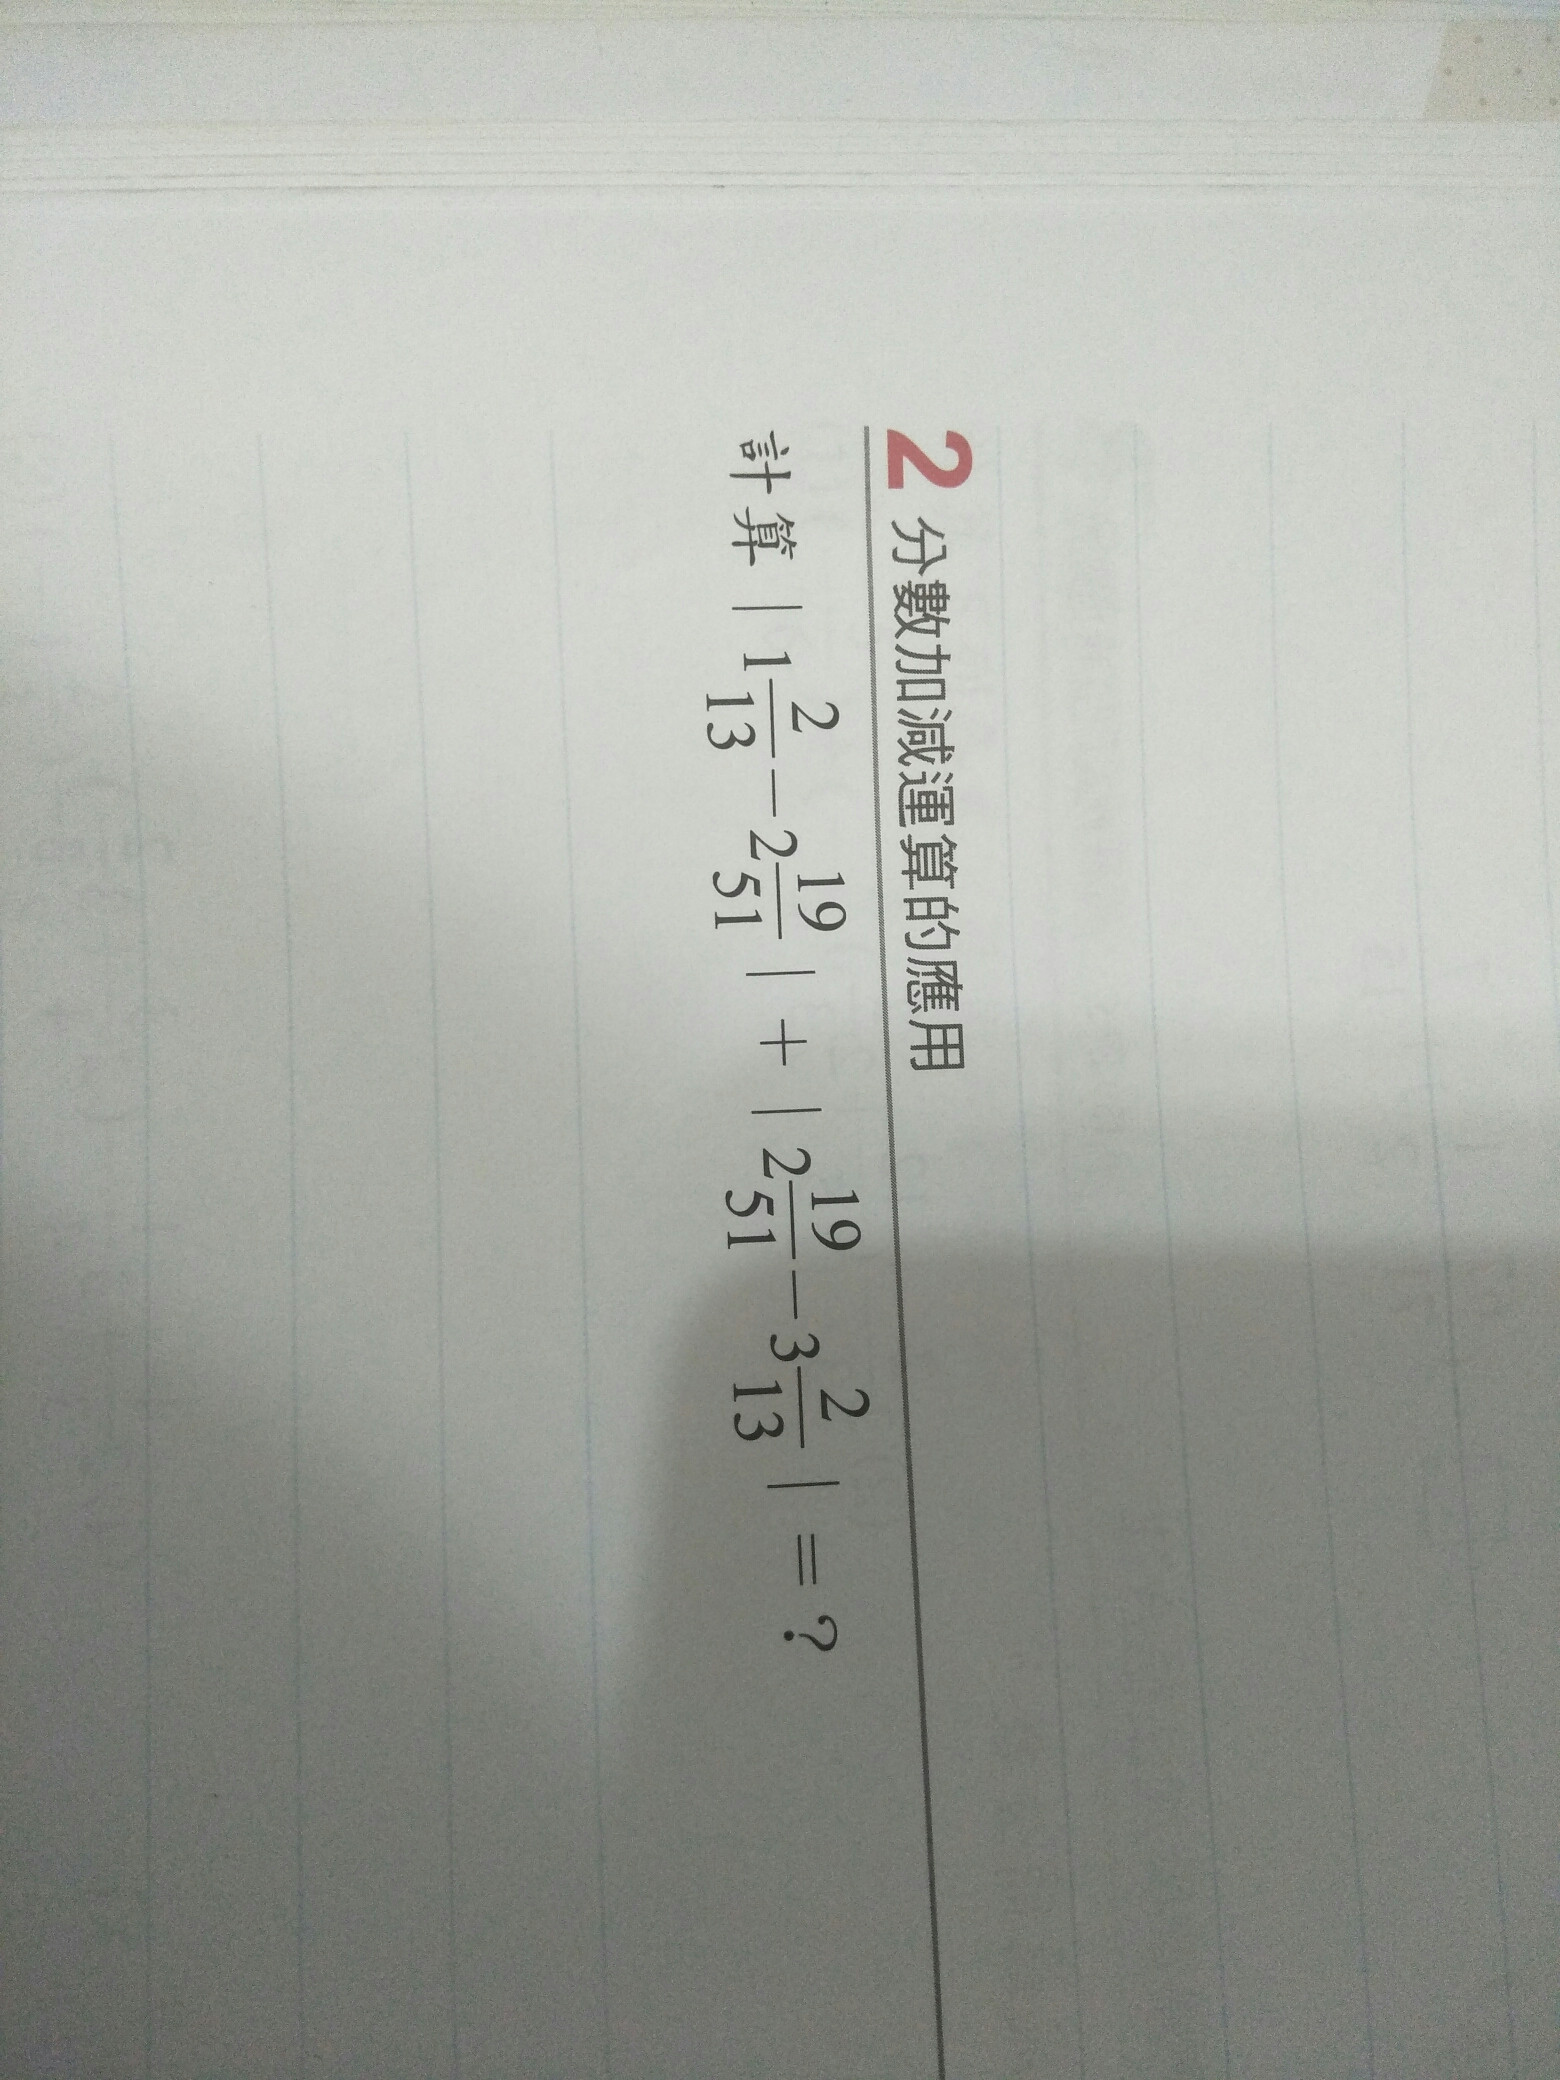 2 分數加減運算的應用
計算｜1 2/13－2 19/51｜＋｜2 19/51－3 2/13｜＝？